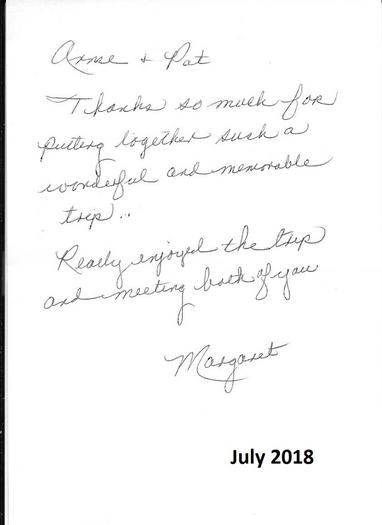 Arne + Pat
Thanks so much for
putting together such a
wonderful and memorable
trip..
Really enjoyed the trip
and meeting both of you
Margaret
July 2018